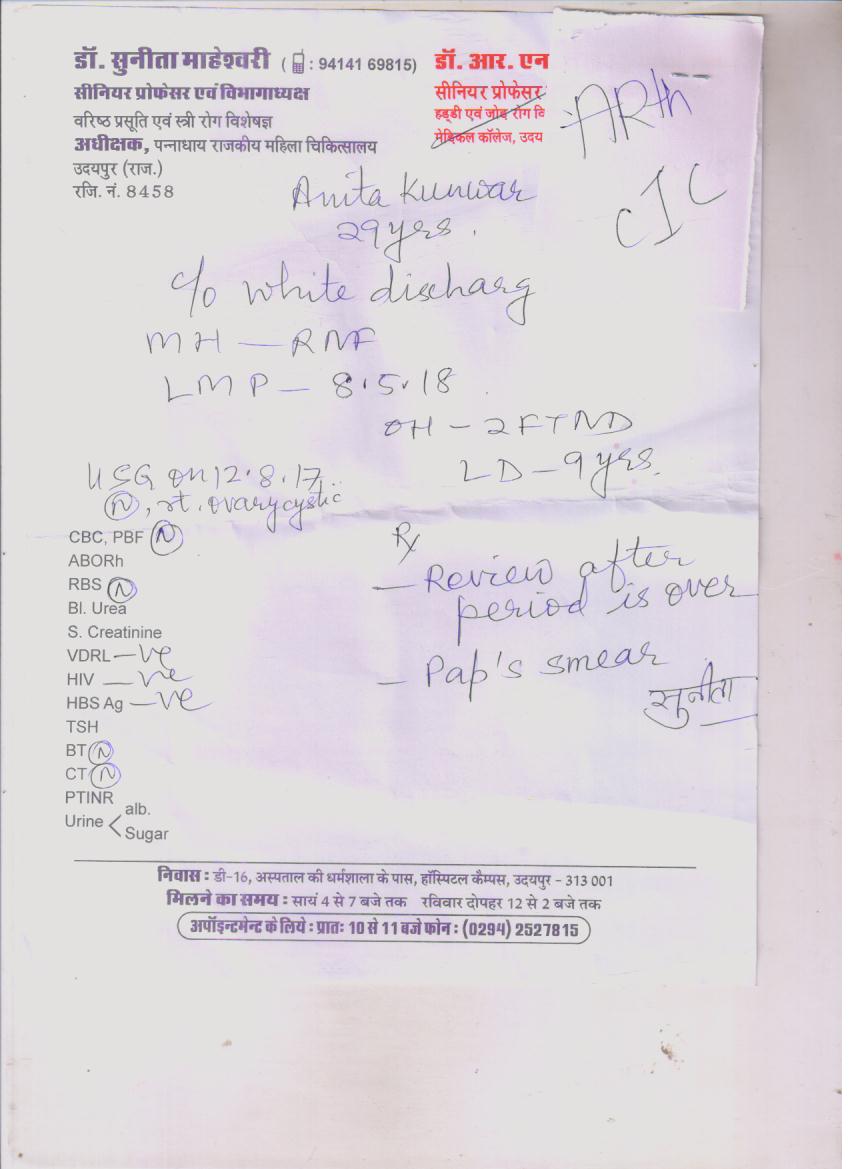 डॉ. सुनीता माहेश्वरी ( : 94141 69815)
सीनियर प्रोफेसर एवं विभागाध्यक्ष
वरिष्ठ प्रसूति एवं स्त्री रोग विशेषज्ञ
अधीक्षक, पन्नाधाय राजकीय महिला चिकित्सालय
उदयपुर (राज.)
रजि. नं. 8458
डॉ. आर. एन
सीनियर प्रोफेसर
हड्डी एवं जोड़ रोग वि
मेडिकल कॉलेज, उदय
ARth
CIC
Anita Kunwar
29 yrs.
c/o white discharg
MH — RNF
LMP — 8.5.18
OH - 2 FTND
LD - 9 yrs.
USG on 12.8.17
(N), rt. ovary cystic
CBC, PBF (N)
ABORh
RBS (N)
Bl. Urea
S. Creatinine
VDRL — ve
HIV — ve
HBS Ag — ve
TSH
BT (N)
CT (N)
PTINR
Urine < alb.
Sugar
Rx
— Review after
period is over
— Pap's smear
सुनीता
निवास : डी-16, अस्पताल की धर्मशाला के पास, हॉस्पिटल कैम्पस, उदयपुर - 313 001
मिलने का समय : सायं 4 से 7 बजे तक रविवार दोपहर 12 से 2 बजे तक
अपॉइन्टमेन्ट के लिये : प्रातः 10 से 11 बजे फोन : (0294) 2527815